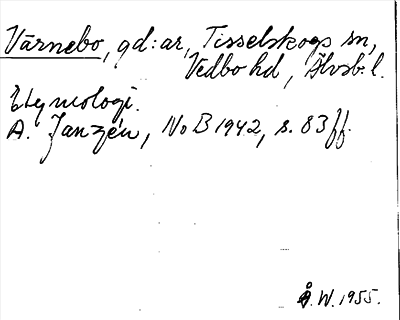 Värnebo, gd:ar, Tisselskogs sn,
Vedbo hd, Älvsb. l.
Etymologi.
A. Janzén, NoB 1942, s. 83 ff.
Å. W. 1955.